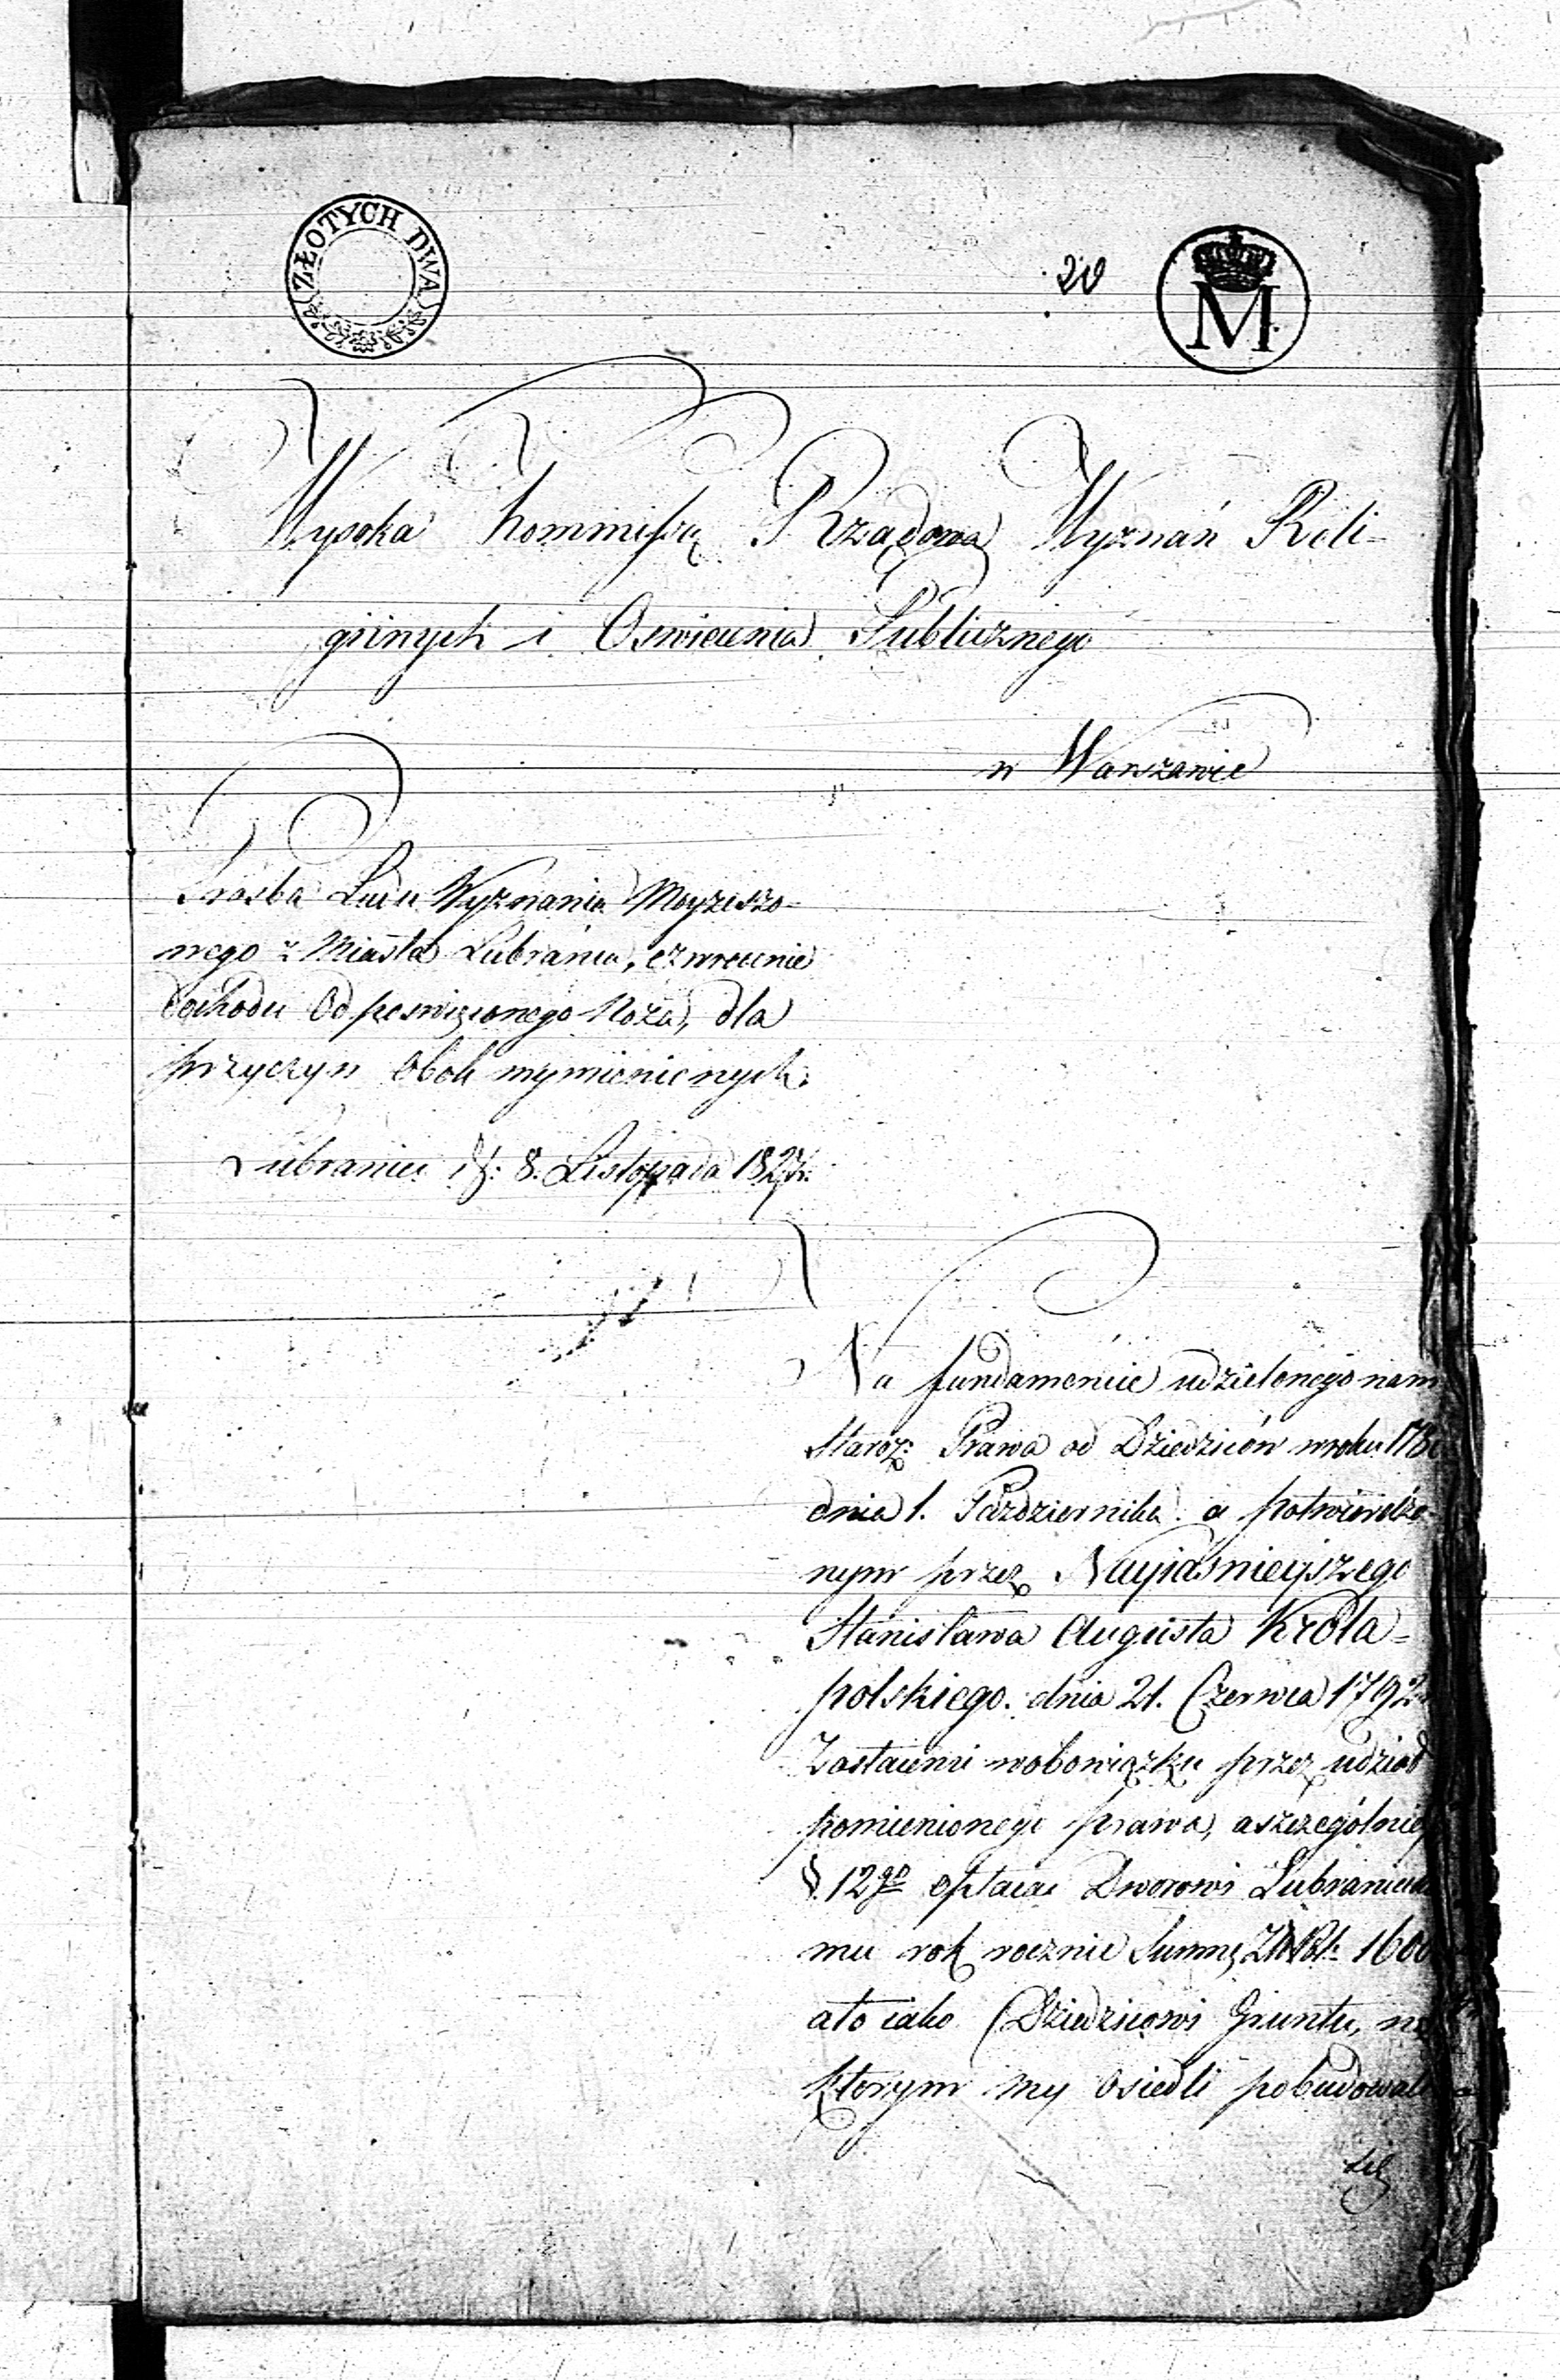 ZŁOTYCH DWA
20
M
Wysoka Kommissyą Rządowa Wyznań Reli-
giinych i Oswiecenia Publicznego
w Warszawie
Prosba Ludu Wyznania Moyzeszo-
wego z Miasta Lubrańca, o zwrocenie
dochodu od poswięconego Noża, dla
przyczyn obok wymienionych.
Lubraniec d: 8. Listopada 1827r.
Na fundamencie udzielonego nam
Staroz: Prawa od Dziedziców wroku 178
dnia 1. Pazdziernika a potwierdzo-
nym przez Nayiasnieyszego
Stanisława Augusta Króla-
polskiego. dnia 21. Czerwca 1792
Zostaiemy wobowiązku przez udział
pomienionego prawa, aszczególniey
§. 12go opłacać Dworowi Lubraniecke
mu rok rocznie Summę ZłPol: 1600
ato iako Dziedzicowi Gruntu, na
ktorym my osiedli pobudowali
się